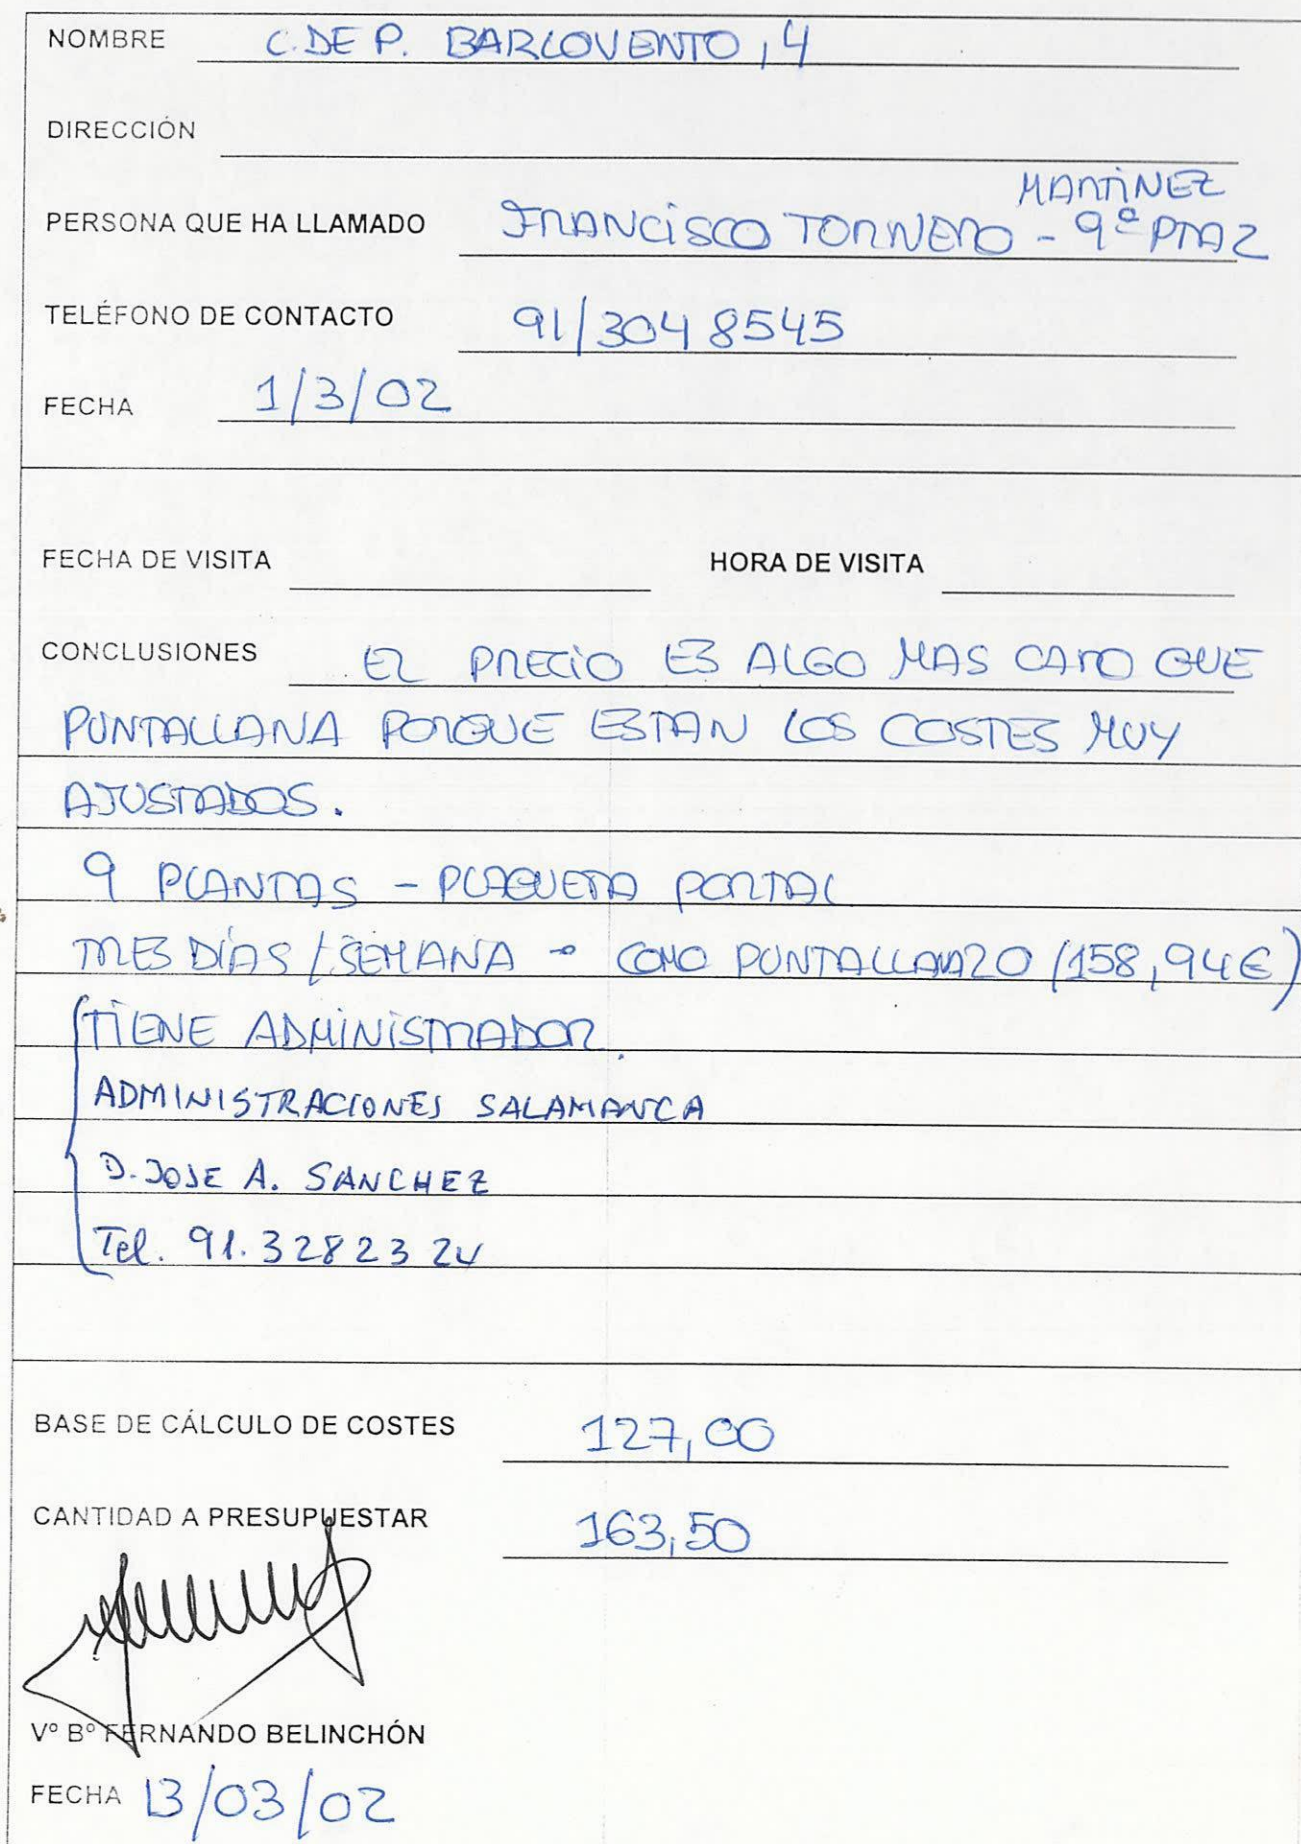 NOMBRE C. DE P. BARLOVENTO, 4
DIRECCIÓN
MARTÍNEZ
PERSONA QUE HA LLAMADO FRANCISCO TORNERO - 9º PTA 2
TELÉFONO DE CONTACTO 91/304 8545
FECHA 1/3/02
FECHA DE VISITA HORA DE VISITA
CONCLUSIONES EL PRECIO ES ALGO MAS CARO QUE
PUNTALLANA PORQUE ESTAN LOS COSTES MUY
AJUSTADOS.
9 PLANTAS - PLAQUETA PORTAL
TRES DÍAS / SEMANA - COMO PUNTALLANA 20 (158,94€)
TIENE ADMINISTRADOR.
ADMINISTRACIONES SALAMANCA
D. JOSE A. SANCHEZ
Tel. 91. 328 23 24
BASE DE CÁLCULO DE COSTES 127,00
CANTIDAD A PRESUPUESTAR 163,50
Vº Bº FERNANDO BELINCHÓN
FECHA 13/03/02